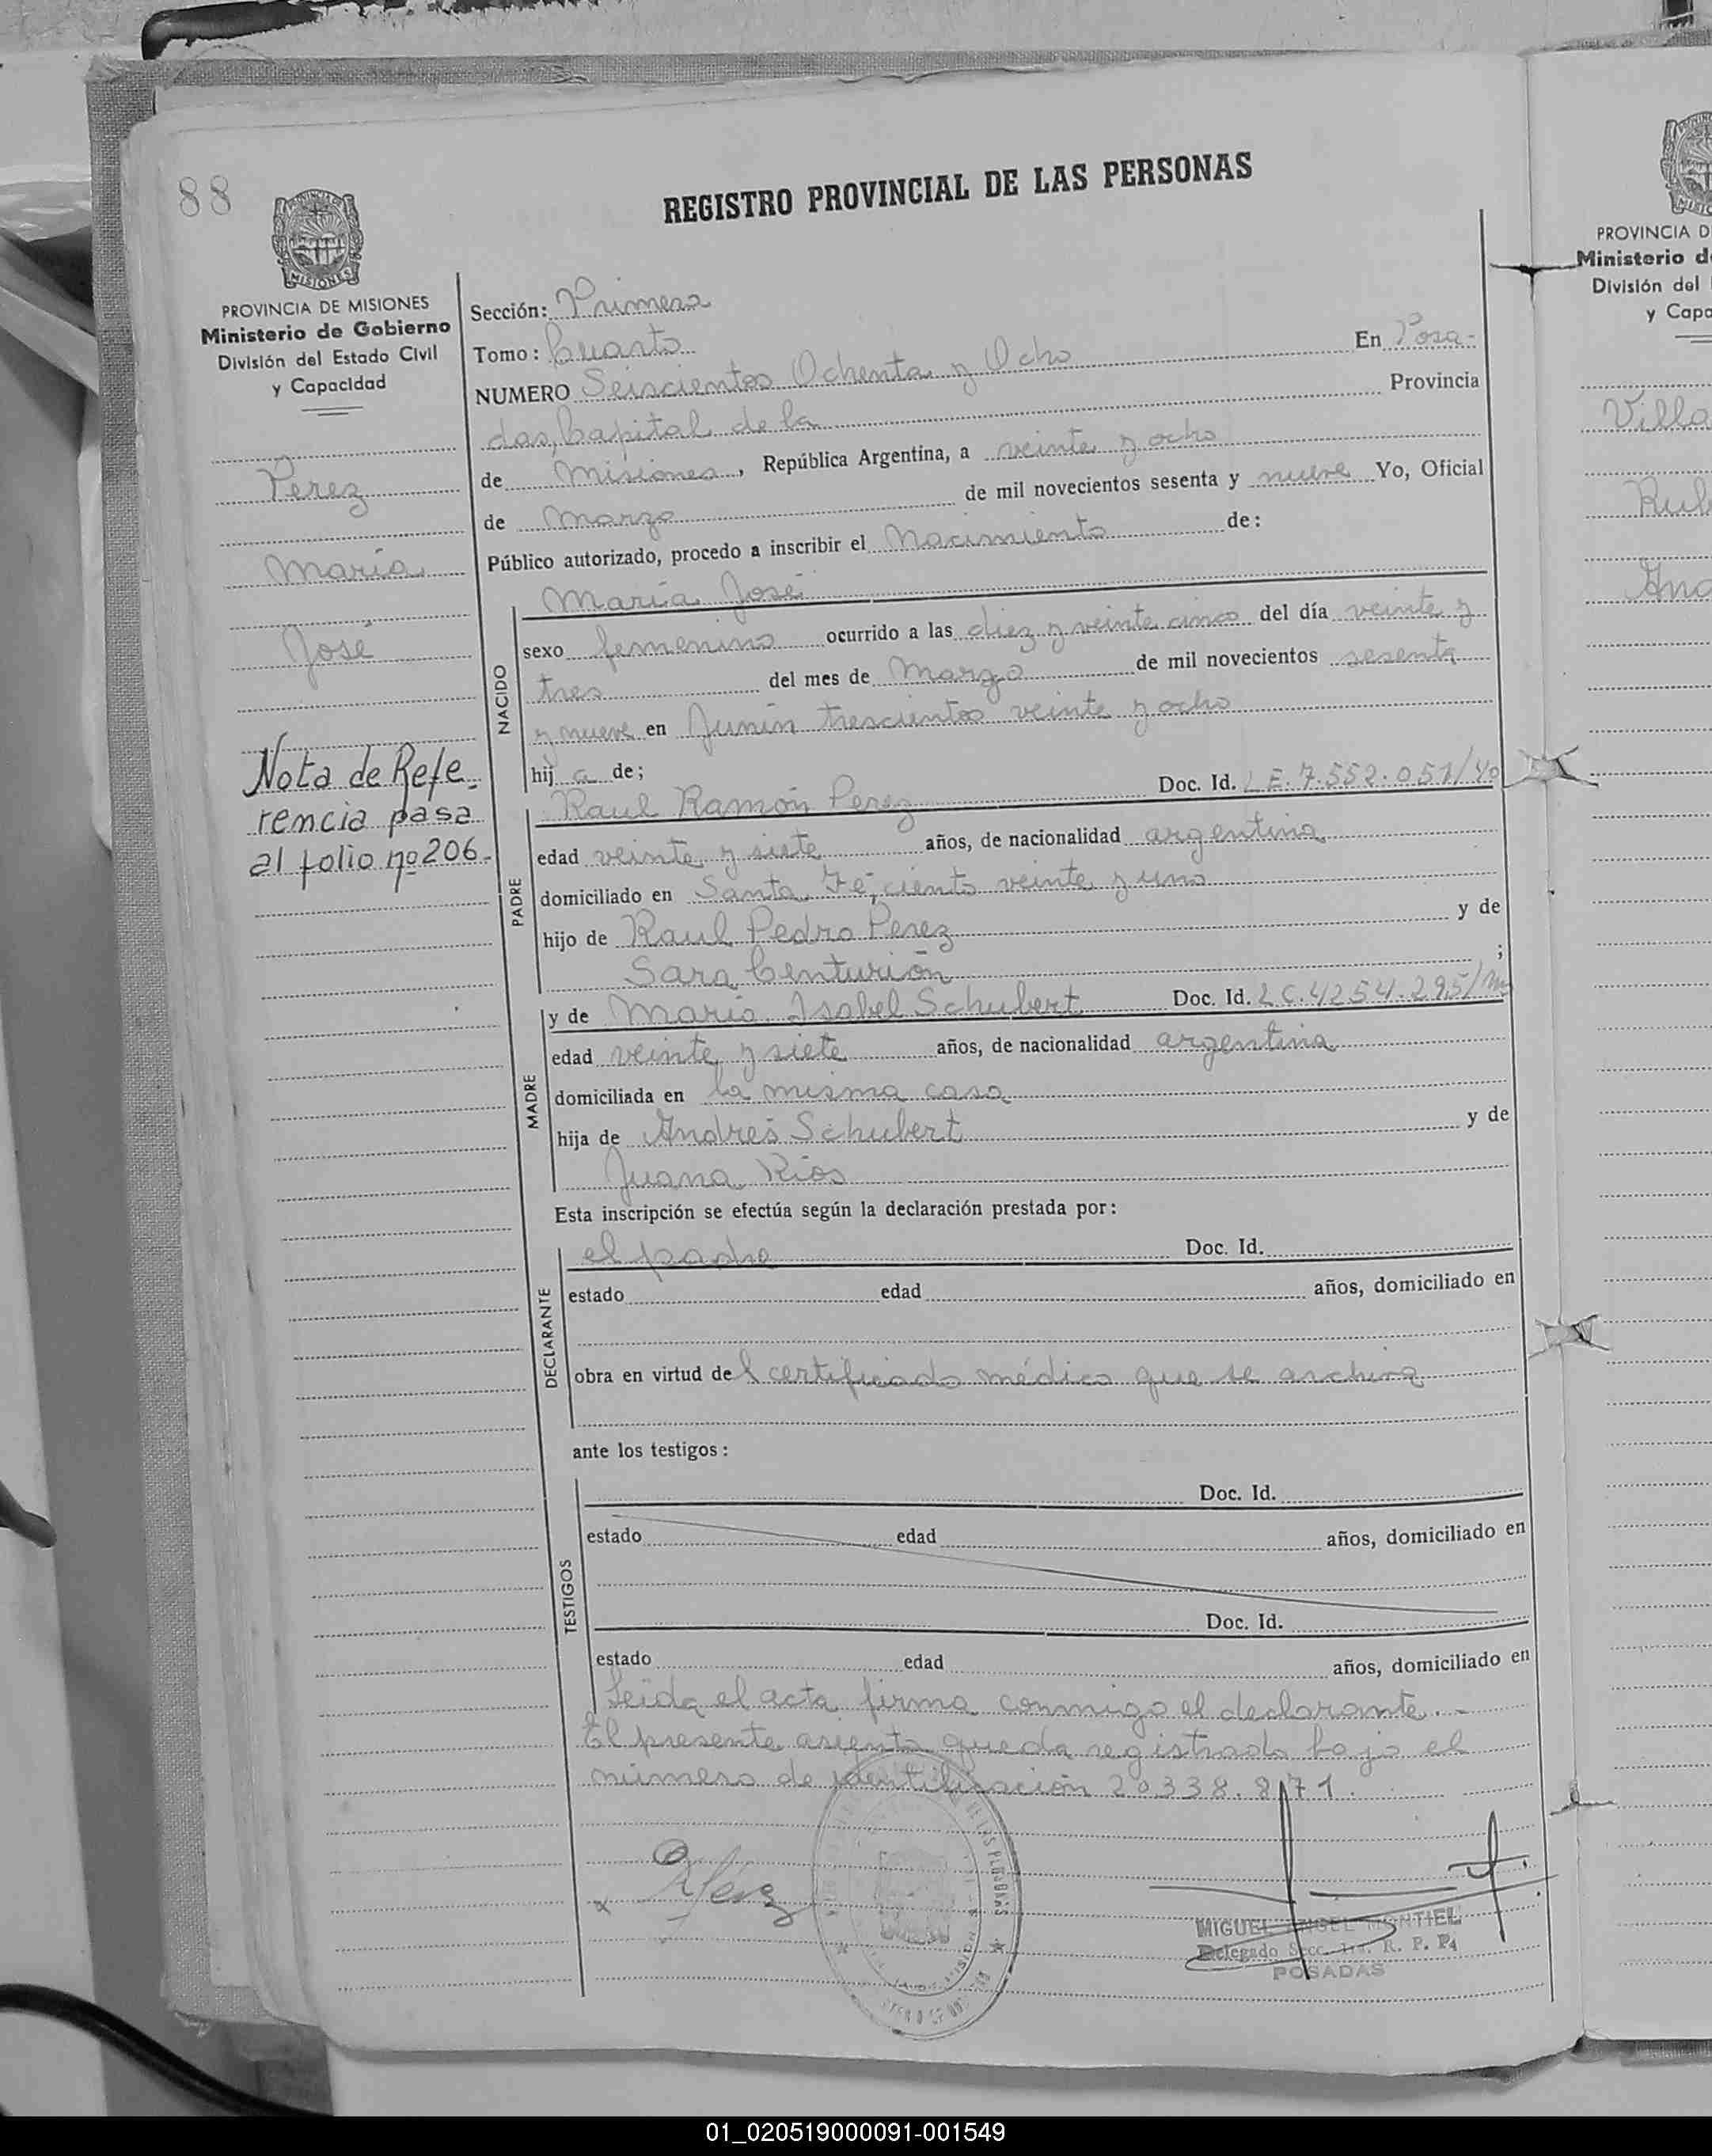 88
REGISTRO PROVINCIAL DE LAS PERSONAS
PROVINCIA DE MISIONES
Ministerio de Gobierno
División del Estado Civil
y Capacidad
Perez
María
José
Nota de Refe-
rencia pasa
al folio nº 206.-
Sección: Primera
Tomo: Cuarto
NUMERO Seiscientos Ochenta y Ocho En Posa-
das, Capital de la Provincia
de Misiones, República Argentina, a veinte y ocho
de Marzo de mil novecientos sesenta y nueve Yo, Oficial
Público autorizado, procedo a inscribir el Nacimiento de:
María José
NACIDO
sexo femenino ocurrido a las diez y veinte cinco del día veinte y
tres del mes de Marzo de mil novecientos sesenta
y nueve en Junín trescientos veinte y ocho
hij a de;
PADRE
Raul Ramón Perez Doc. Id. L E. 7.552.051/40
edad veinte y siete años, de nacionalidad argentina
domiciliado en Santa Fé, ciento veinte y uno
hijo de Raul Pedro Perez y de
Sara Centurión ;
MADRE
y de María Isabel Schubert Doc. Id. L C. 4254.295/M
edad veinte y siete años, de nacionalidad argentina
domiciliada en la misma casa
hija de Andrés Schubert y de
Juana Rios
Esta inscripción se efectúa según la declaración prestada por:
DECLARANTE
el padre Doc. Id.
estado edad años, domiciliado en
obra en virtud del certificado médico que se archiva
ante los testigos:
TESTIGOS
Doc. Id.
estado edad años, domiciliado en
Doc. Id.
estado edad años, domiciliado en
Leida el acta firma conmigo el declarante. -
El presente asiento queda registrado bajo el
número de identificación 20.338.871.
x Perez
DE LAS PERSONAS
MIGUEL ANGEL MONTIEL
Delegado Secc. 1ra. R. P. P.
POSADAS
PROVINCIA D
Ministerio d
División del
y Capa
Villa
Rub
And
01_020519000091-001549